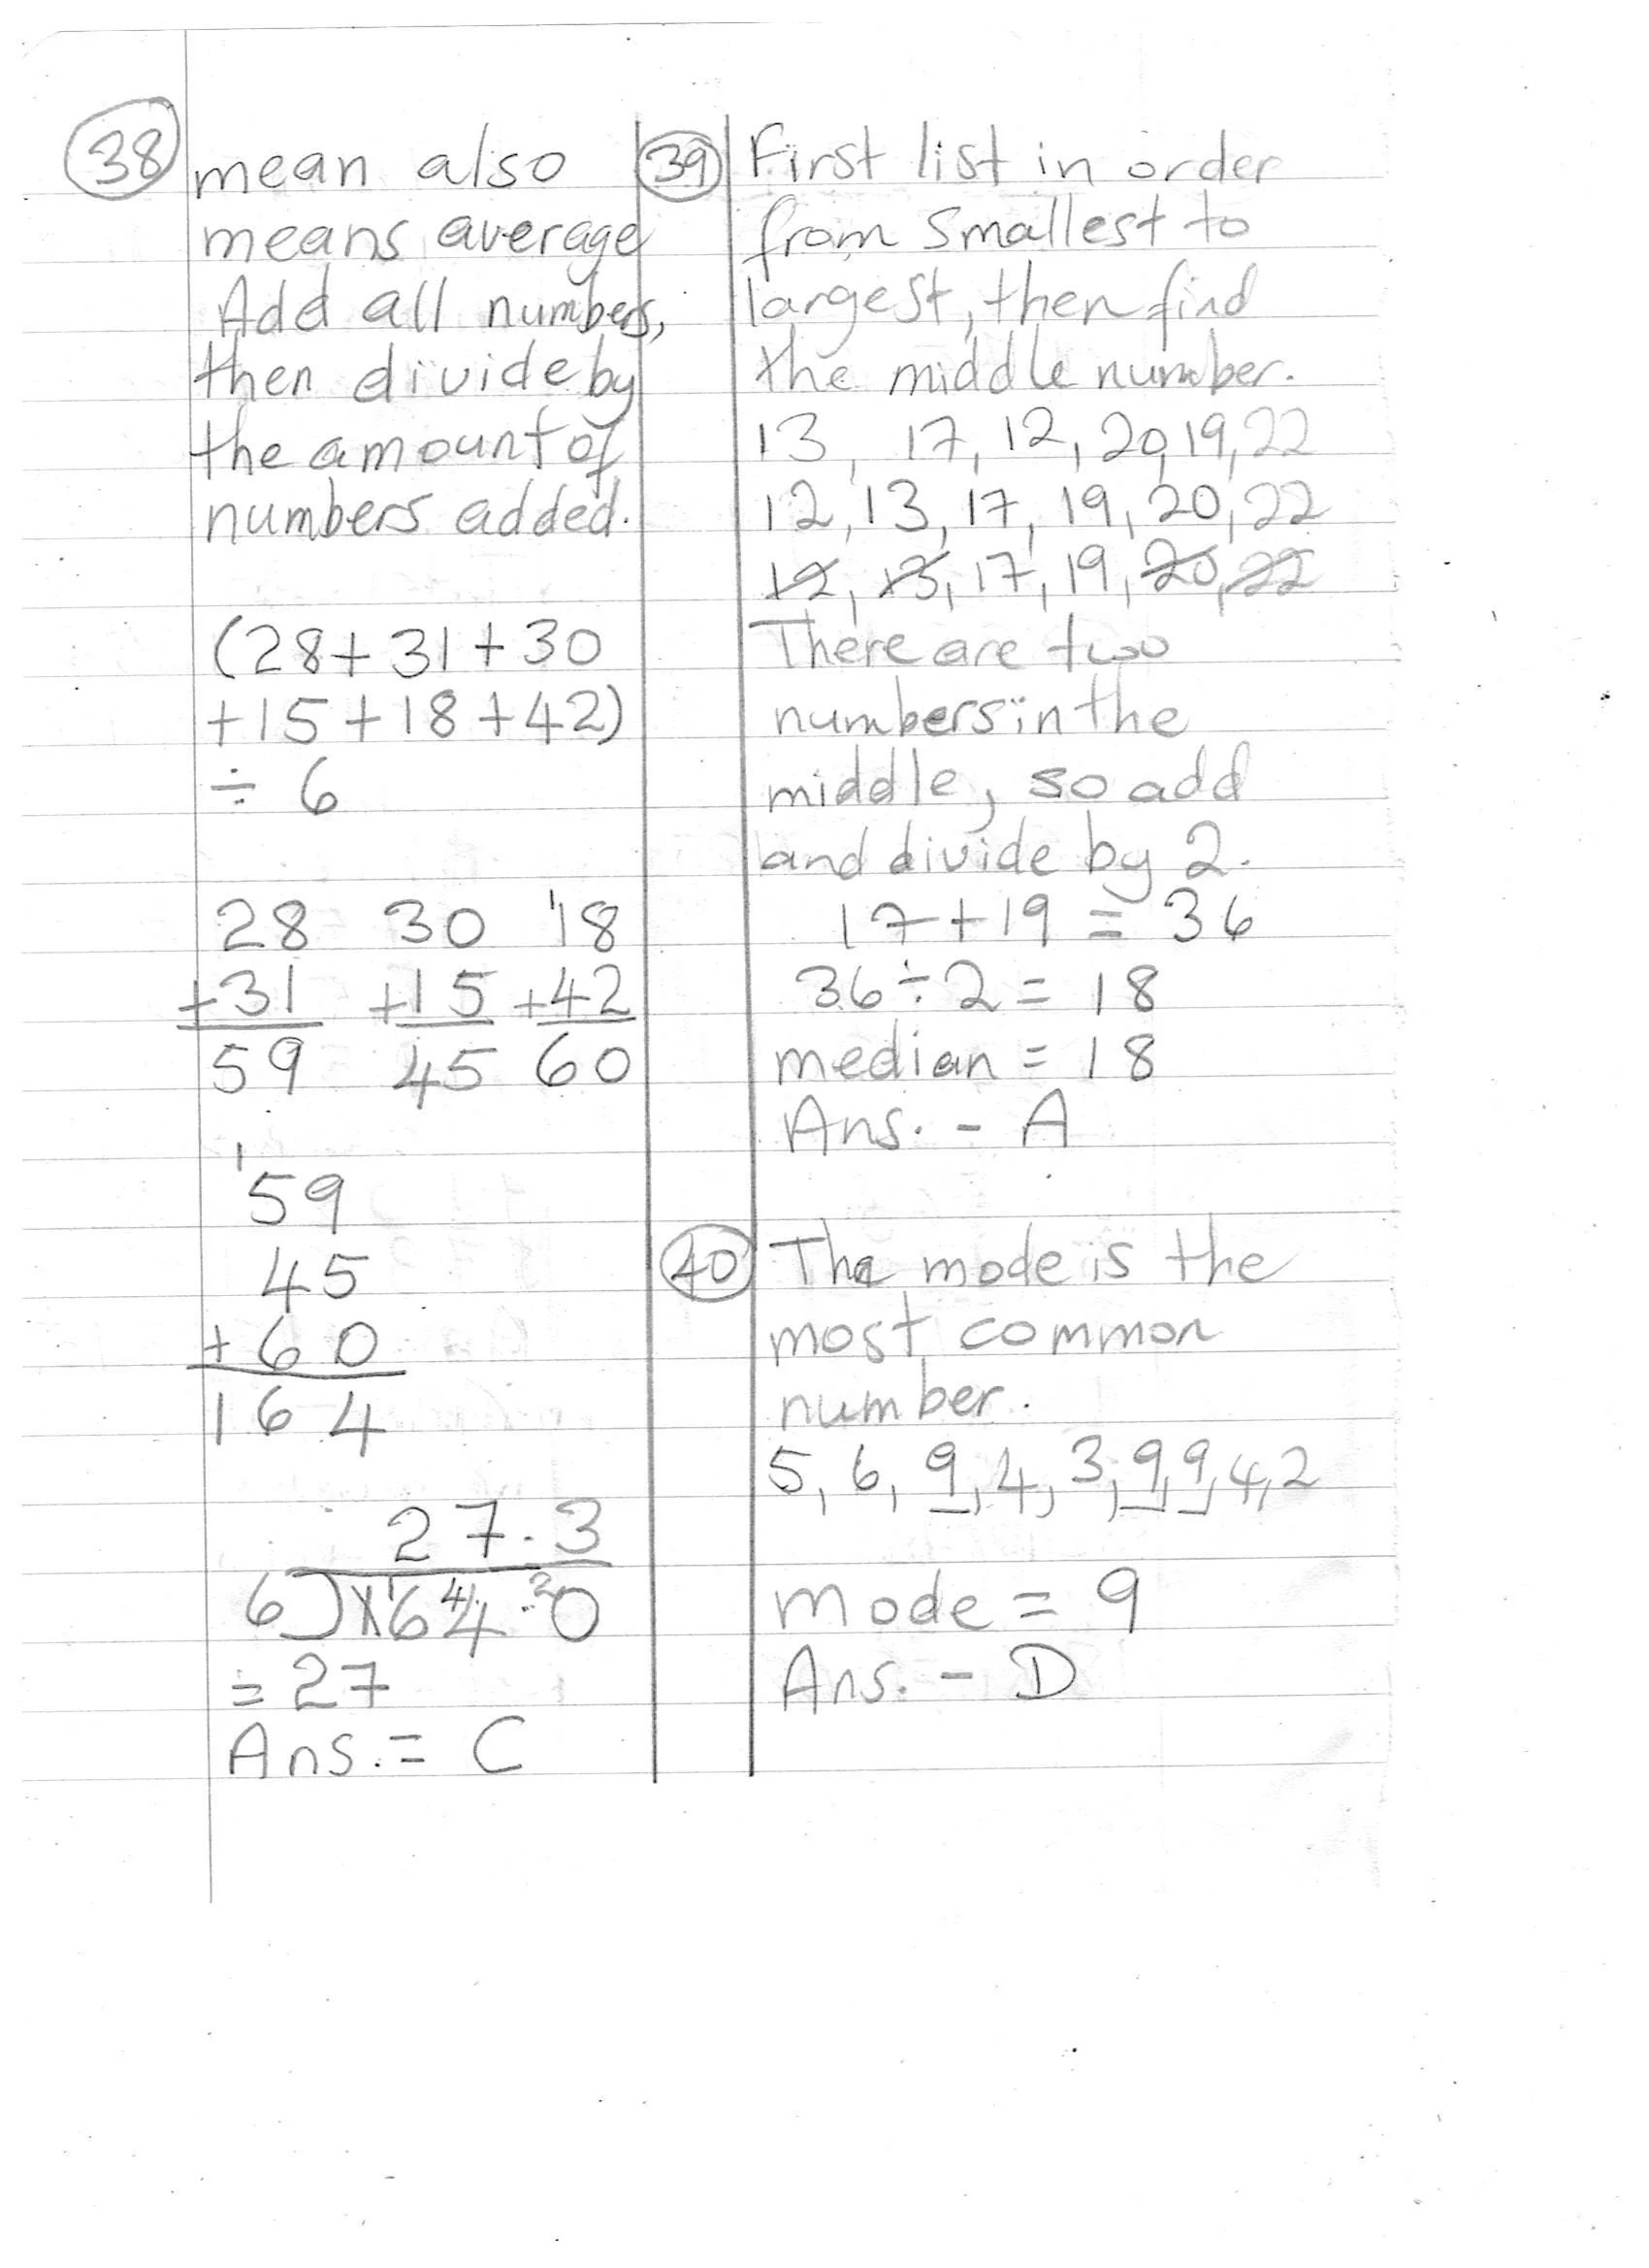 38
mean also
means average
Add all numbers,
then divide by
the amount of
numbers added.
(28+31+30
+15+18+42)
÷ 6
28 30 18
+31 +15 +42
59 45 60
1
59
45
+60
164
27.3
6)164.0
= 27
Ans. = C
39
First list in order
from smallest to
largest, then find
the middle number.
13, 17, 12, 20, 19, 22
12, 13, 17, 19, 20, 22
12, 13, 17, 19, 20, 22
There are two
numbers in the
middle, so add
and divide by 2.
17+19 = 36
36÷2 = 18
median = 18
Ans. - A
40
The mode is the
most common
number.
5, 6, 9, 4, 3, 9, 9, 4, 2
mode = 9
Ans. - D